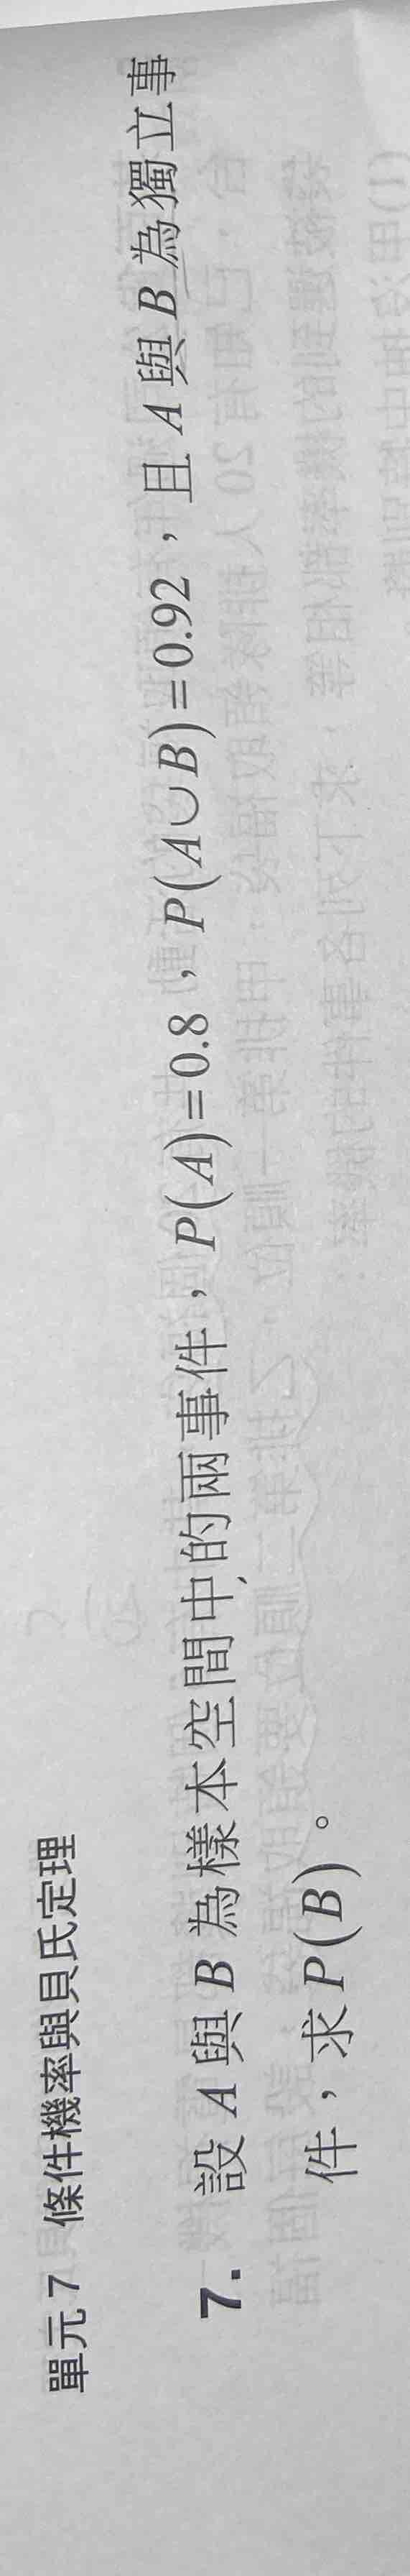 單元 7 條件機率與貝氏定理
7. 設 A 與 B 為樣本空間中的兩事件，P(A)=0.8，P(A∪B)=0.92，且 A 與 B 為獨立事
件，求 P(B)。